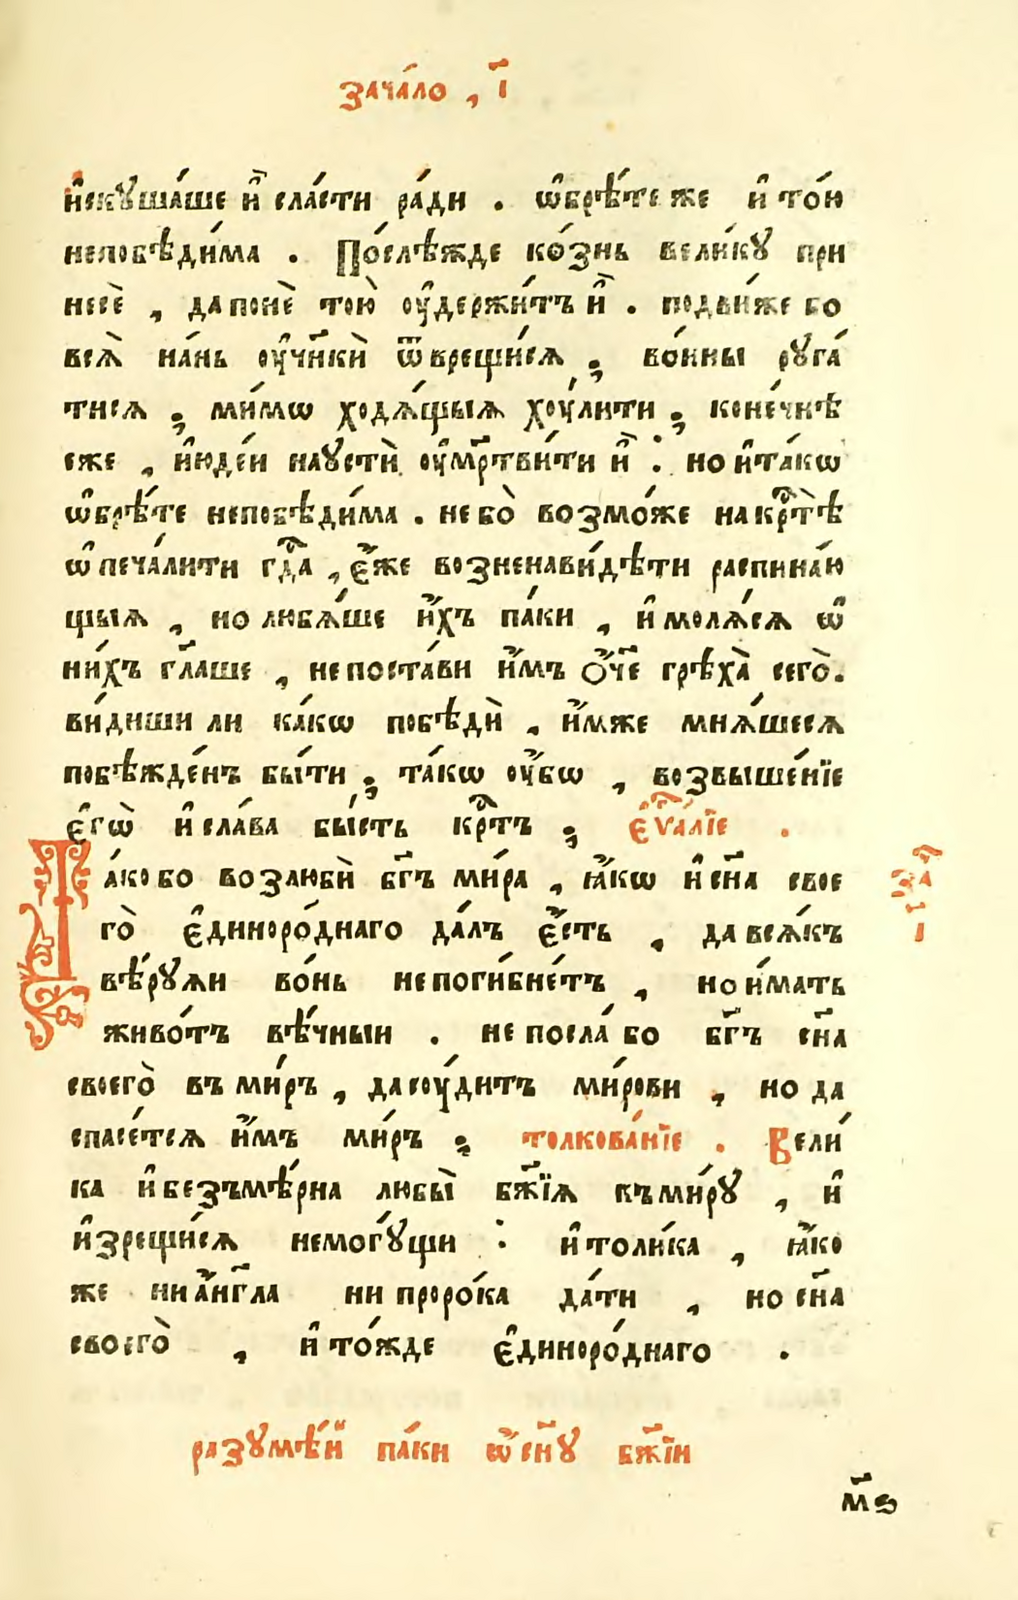 зача́ло , і҃
и҆скꙋша́ше и҆̀ сла́сти ра́ди . ѡ҆брѣ́те же и҆ то́ю
непобѣди́ма . Послѣжде ко́знь вели́кꙋ при
несѐ , да понѐ то́ю ᲂу҆держи́тъ и҆̀ . подви́же бо
всѧ̀ на́нь ᲂу҆чн҃кѝ ѿврещи́сѧ , во́ины рꙋга́
тисѧ , ми́мѡ ходѧ́щыѧ хᲂу́лити , коне́чнѣ
еже , и҆юде́и наꙋстѝ ᲂу҆мр҃тви́ти и҆̀ : но и҆ та́кѡ
ѡ҆брѣ́те непобѣди́ма . не бо̀ возмо́же на крⷭ҇тѣ
ѡ҆печа́лити гдⷭ҇а , є҆́же возненави́дѣти распина́ю
щыѧ , но любѧ́ше и҆́хъ па́ки , и҆ молѧ́сѧ ѡ҆
ни́хъ гл҃аше , не поста́ви и҆́мъ Ѻ҆́ч҃е грѣха̀ сего̀.
ви́диши ли ка́кѡ побѣдѝ , и҆́мже мнѧ́шесѧ
побѣжде́нъ бы́ти , та́кѡ ᲂу҆́бѡ , возвыше́нїе
є҆гѡ̀ и҆ сла́ва бы́сть крⷭ҇тъ , є҆ѵⷢ҇а́лїе .
Та́ко бо возлюбѝ бг҃ъ ми́ра , ꙗ҆́кѡ и҆ сн҃а свое
го̀ є҆диноро́днаго да́лъ є҆́сть , да всѧ́къ
вѣ́рꙋѧи во́нь не поги́бнетъ , но и́мать
живо́тъ вѣ́чныи . не посла́ бо бг҃ъ сн҃а
своего̀ въ ми́ръ , да сᲂу́дитъ ми́рови , но да
спасе́тсѧ и҆́мъ ми́ръ , толкова́нїе . Вели́
ка и҆ безъмѣ́рна любы̀ бж҃їѧ къ ми́рꙋ , и҆
и҆зрещи́сѧ немогꙋ́щи : и҆ толи́ка , ꙗ҆́ко
же ни а҆́нг҃ла ни проро́ка да́ти , но сн҃а
своего̀ , и҆ то́жде є҆диноро́днаго .
за
і
разꙋмѣ́й па́ки ѡ҆ сн҃ꙋ бж҃їи
м҃ѕ